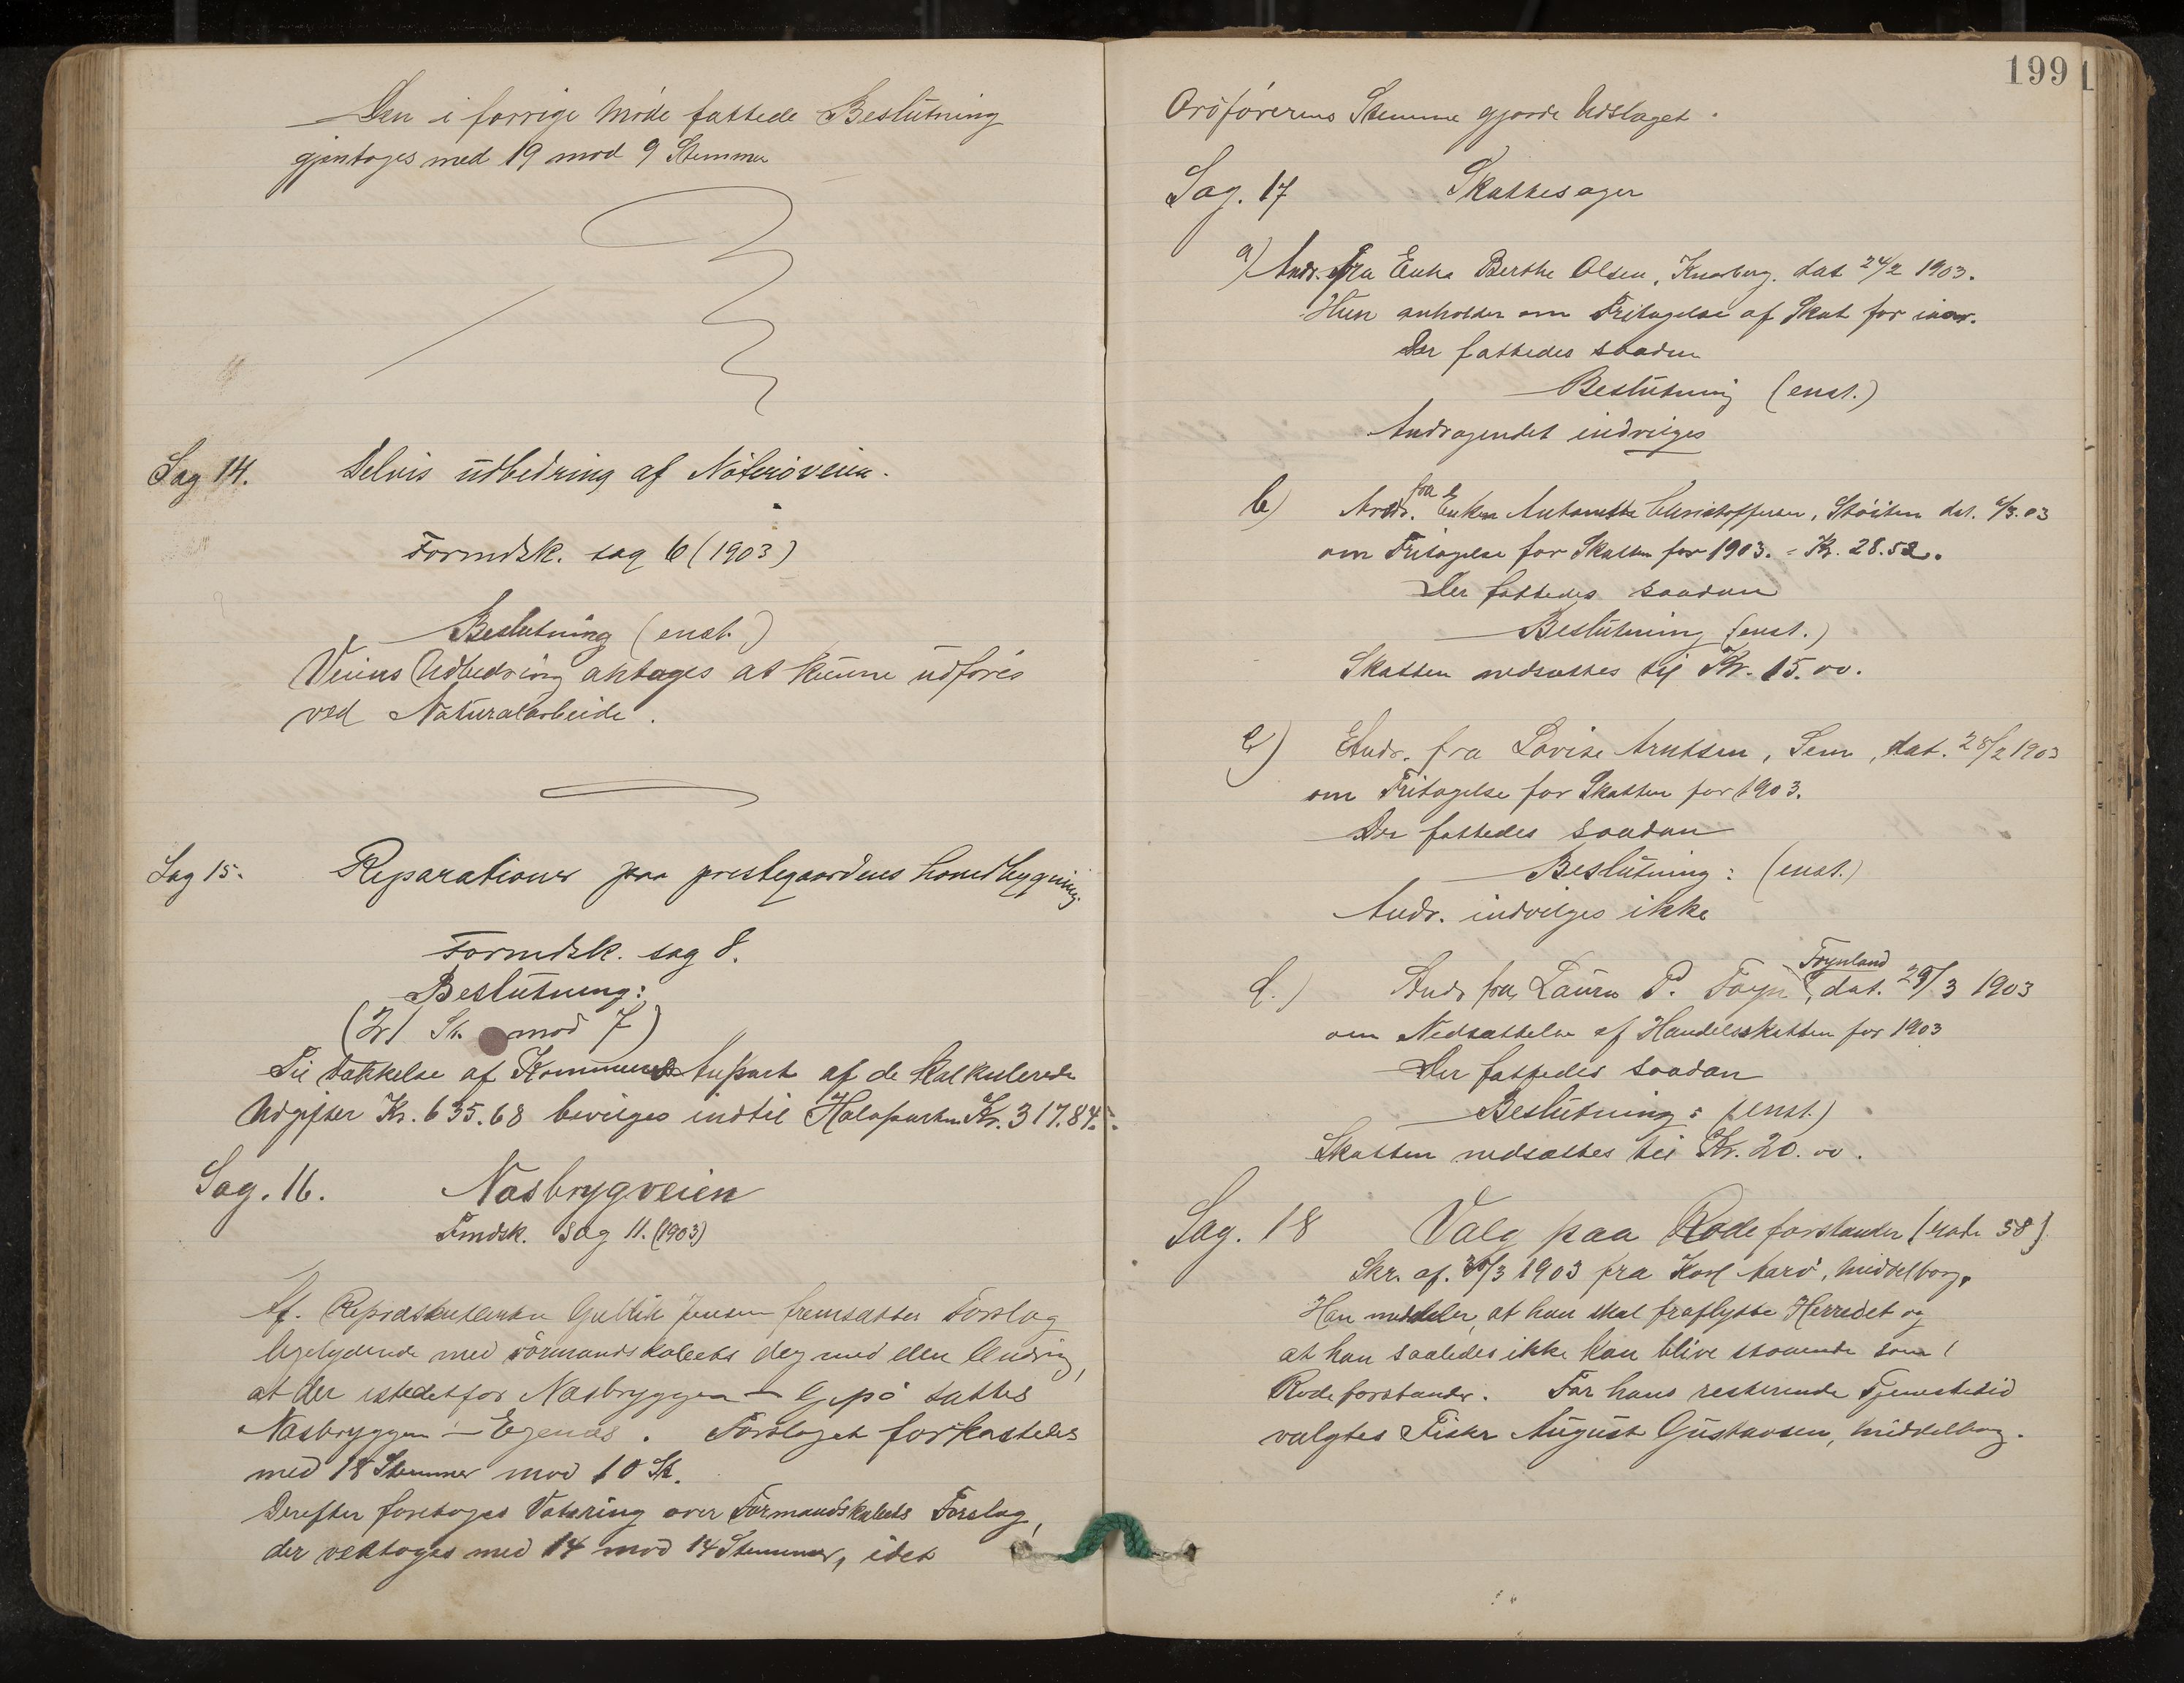 Den i forrige Møde fattede Beslutning
gjentoges med 19 mod 9 Stemmer
Sag 14. Delvis udbedring af Nøterøveien.
Formdsk. sag 6 (1903)
Beslutning (enst.)
Veiens Udbedring antages at kunne udføres
ved Naturalarbeide.
Sag 15. Reparationer paa prestegaardens hovedbygning.
Formdsk. sag 8.
Beslutning:
(21 St. mod 7)
Til Dækkelse af Kommunens Anpart af de kalkulerede
Udgifter Kr. 635.68 bevilges indtil Halvparten Kr. 317.84.
Sag. 16. Næsbrygveien
Fmdsk. sag 11. (1903)
Af Repræsentanten Gullik Jensen fremsattes Forslag
ligelydende med Formandskabets dog med den Ændring,
at der istedetfor Næsbryggen — Gipø sættes
Næsbryggen — Egenæs. Forslaget forkastedes
med 18 Stemmer mod 10 St.
Derefter foretoges Votering over Formandskabets Forslag,
der vedtoges med 14 mod 14 Stemmer, idet
199
Ordførerens Stemme gjorde Udslaget.
Sag. 17 Skattesager
a) Andr. fra Enke Berthe Olsen, Knarberg. dat 24/2 1903.
Hun anholder om Fritagelse af Skat for iaar.
Der fattedes saadan
Beslutning (enst.)
Andragendet indvilges
b) Andr. fra Enken Antonette Christoffersen, Støiten dat. 9/3.03
om Fritagelse for Skatten for 1903. = Kr. 28.52.
Der fattedes saadan
Beslutning (enst.)
Skatten nedsættes til Kr. 15.00.
c) Andr. fra Lovise Arntsen, Sem, dat. 28/2 1903
om Fritagelse for Skatten for 1903.
Der fattedes saadan
Beslutning: (enst.)
Andr. indvilges ikke
d.) Andr fra Laura P. Foyn, Føynland dat. 29/3 1903
om Nedsættelse af Handelsskatten for 1903
Der fattedes saadan
Beslutning: (enst.)
Skatten nedsættes til Kr. 20.00.
Sag. 18 Valg paa Rodeforstander (rode 58)
Skr. af. 30/3 1903 fra Karl Aarø, Middelborg.
Han meddeler, at han skal fraflytte Herredet og
at han saaledes ikke kan blive staaende som
Rodeforstander. For hans resterende Tjenestetid
valgtes Fisker August Gustavsen, Middelborg.